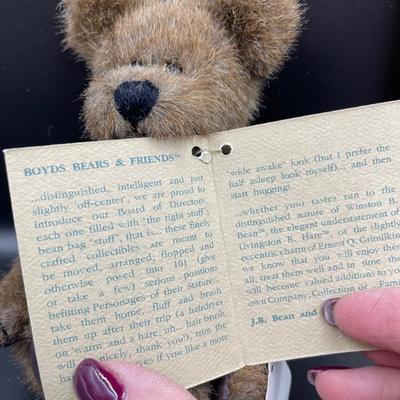 BOYDS BEARS & FRIENDS™
...distinguished, intelligent and just
slightly 'off-center', we are proud to
introduce our Board of Director,
each one filled with "the right stuff";
bean bag "stuff", that is... these finely
crafted collectibles are meant to
be moved, arranged, flopped and
otherwise posed into 101 (give
or take a few) serious positions
befitting Personages of their stature...
take them home, fluff and brush
them up after their trip (a hairdryer
on 'warm' and a hare, uh... hair brush
will nicely, thank you!), trim the
eyes if you like a more
"wide awake" look (but I prefer the
half asleep look myself)... and then
start hugging!
...whether your tastes run to the
distinguished nature of Winston B.
Bean™, the elegant understatement of
Livingston R. Hare™, or the slightly
eccentric charm of Ernest Q. Grimilkin
we know that you will enjoy them
all, treat them well and in time they
will become valued additions to you
own Company, Collection or
J.B. Bean and